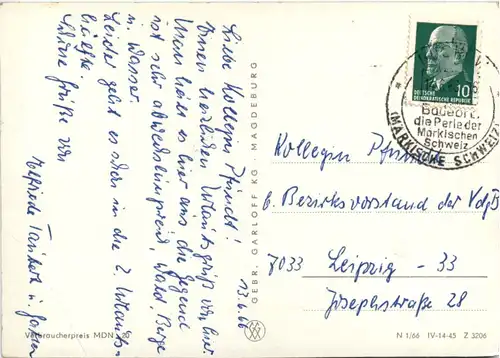 13.6.66
Liebe Kollegin Pfundt!
Ihnen herzlichen Urlaubsgruß von hier.
Uns gefällt es hier, die Gegend
ist sehr abwechslungsreich, Wald, Berge
u. Wasser.
Leider geht es schon in die 2. Urlaubs-
hälfte.
Liebe Grüße von
Elfriede u.
GEBR. GARLOFF KG · MAGDEBURG
Verbraucherpreis MDN
10
DEUTSCHE
DEMOKRATISCHE REPUBLIK
Badeort.
die Perle der
Märkischen
Schweiz
(MÄRKISCHE SCHWEIZ)
Kollegin
b. Bezirksvorstand der VdgB
7033 Leipzig - 33
Josephstraße 28
N 1/66 IV-14-45 Z 3206